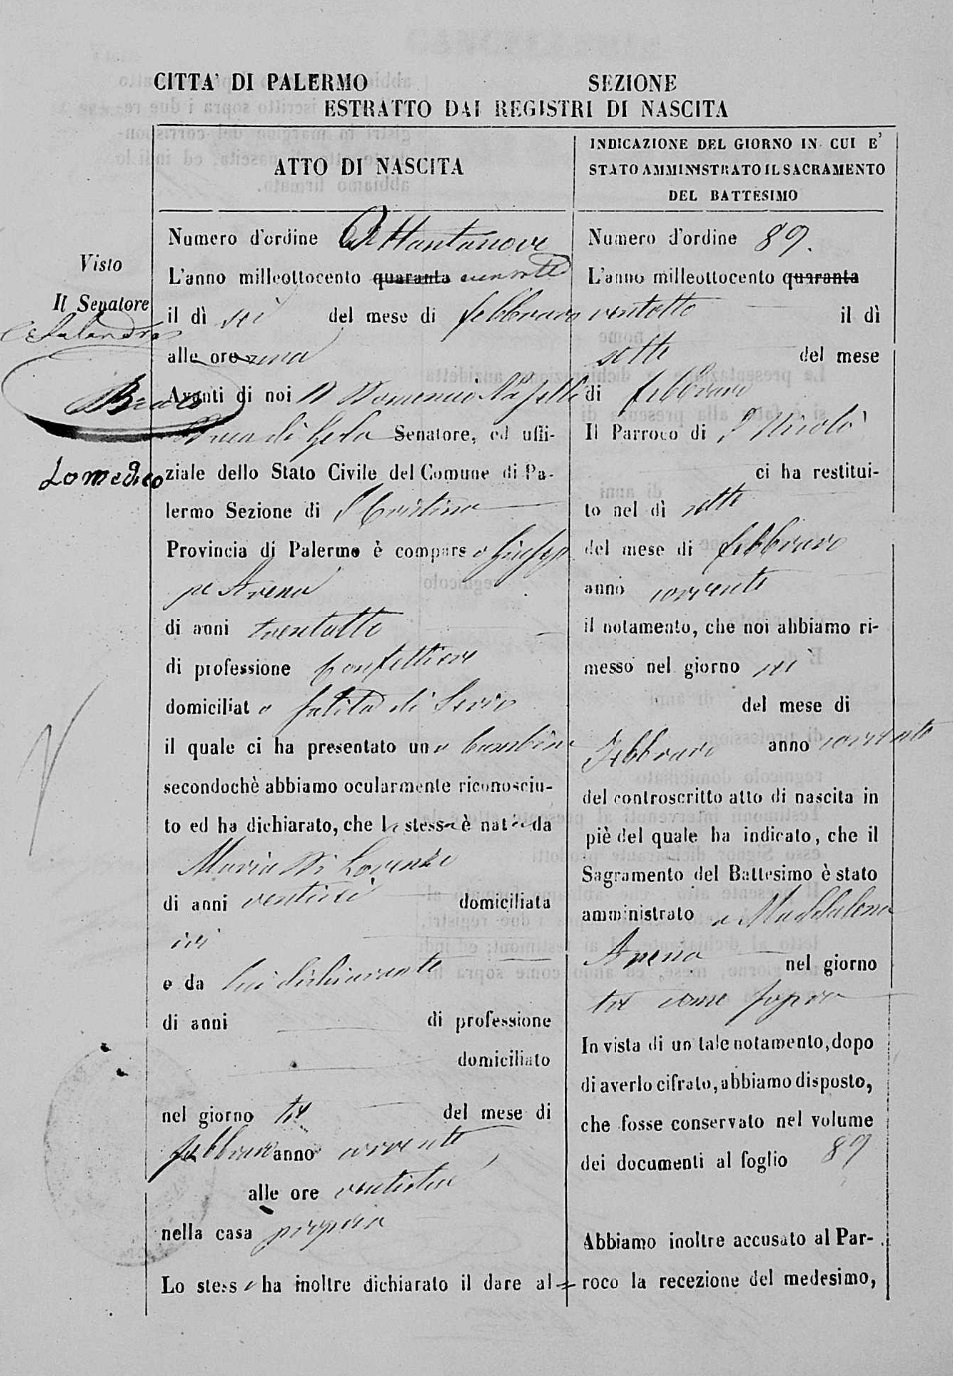 CITTA' DI PALERMO SEZIONE
ESTRATTO DAI REGISTRI DI NASCITA
ATTO DI NASCITA
Numero d'ordine Ottantanove
L'anno milleottocento quaranta
il dì sei del mese di febbraro
alle ore una
Avanti di noi D Domenico
Duca di Senatore, ed uffi-
ziale dello Stato Civile del Comune di Pa-
lermo Sezione di S Cristina
Provincia di Palermo è compars o Giusep
pe Arena
di anni trentotto
di professione Confettiere
domiciliat o salita di
il quale ci ha presentato un a bambina
secondochè abbiamo ocularmente riconosciu-
to ed ha dichiarato, che la stessa è nata da
Maria Di Lorenzo
di anni ventisei domiciliata
ivi
e da lui dichiarante
di anni di professione
domiciliato
nel giorno tre del mese di
febbraro anno corrente
alle ore
nella casa propria
Lo stesso ha inoltre dichiarato il dare al=
INDICAZIONE DEL GIORNO IN CUI E'
STATO AMMINISTRATO IL SACRAMENTO
DEL BATTESIMO
Numero d'ordine 89.
L'anno milleottocento quaranta
ventotto il dì
sette del mese
di febbraro
Il Parroco di S Nicolò
ci ha restitui-
to nel dì sette
del mese di febbraro
anno corrente
il notamento, che noi abbiamo ri-
messo nel giorno sei
del mese di
Febbraro anno corrente
del controscritto atto di nascita in
piè del quale ha indicato, che il
Sagramento del Battesimo è stato
amministrato a Maddalena
Arena nel giorno
tre come sopra
In vista di un tale notamento, dopo
di averlo cifrato, abbiamo disposto,
che fosse conservato nel volume
dei documenti al foglio 89
Abbiamo inoltre accusato al Par-
roco la recezione del medesimo,
Visto
Il Senatore
Lomedico